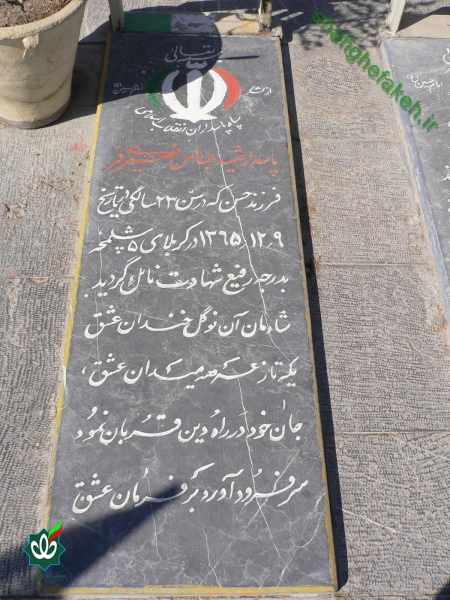 بسمه تعالی
سپاه پاسداران انقلاب اسلامی
پاسدار شهید عباس
فرزند حسن که در سن ۲۳ سالگی در تاریخ
۱۳۶۵،۱۲،۹ در کربلای ۵ شلمچه
بدرجه رفیع شهادت نائل گردید
شادمان آن نوگل خندان عشق
یکه تاز عرصه میدان عشق،
جان خود در راه دین قربان نمود
سر فرود آورد بر فرمان عشق
sibanghefakeh.ir